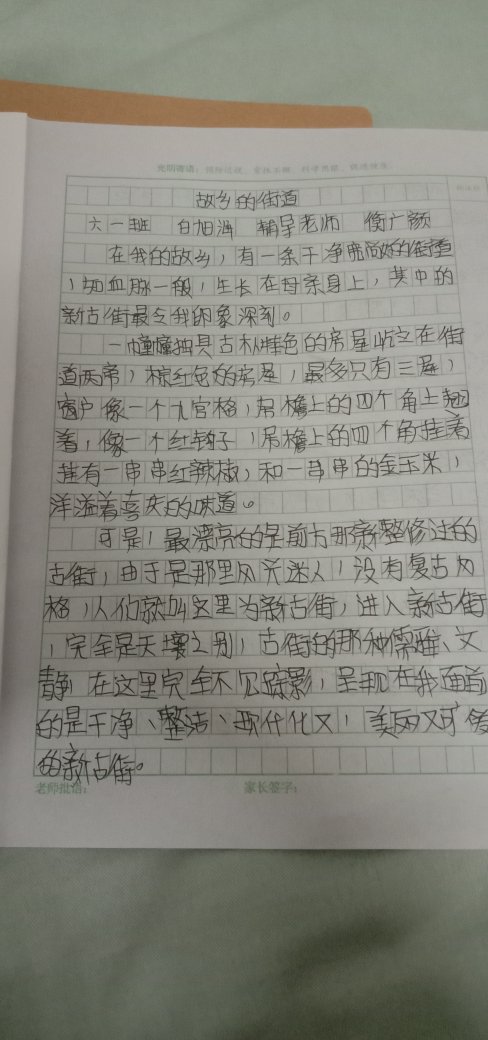 光明寄语：
故乡的街道
六一班 白旭 辅导老师 衡广颜
在我的故乡，有一条干净宽敞的街道
，如血脉一般，生长在母亲身上，其中的
新古街最令我印象深刻。
一幢幢独具古朴特色的房屋屹立在街
道两旁，棕红色的房屋，最多只有三层，
窗户像一个九宫格，房檐上的四个角上翘
着，像一个红钩子，房檐上的四个角挂着
挂有一串串红辣椒，和一串串的金玉米，
洋溢着喜庆的味道。
可是，最漂亮的是前方那新整修过的
古街，由于是那里风光迷人，没有复古风
格，人们就叫这里为新古街，进入新古街
，完全是天壤之别，古街的那种儒雅、文
静，在这里完全不见踪影，呈现在我面前
的是干净、整洁、现代化又，美丽又可爱
的新古街。
老师批语： 家长签字：